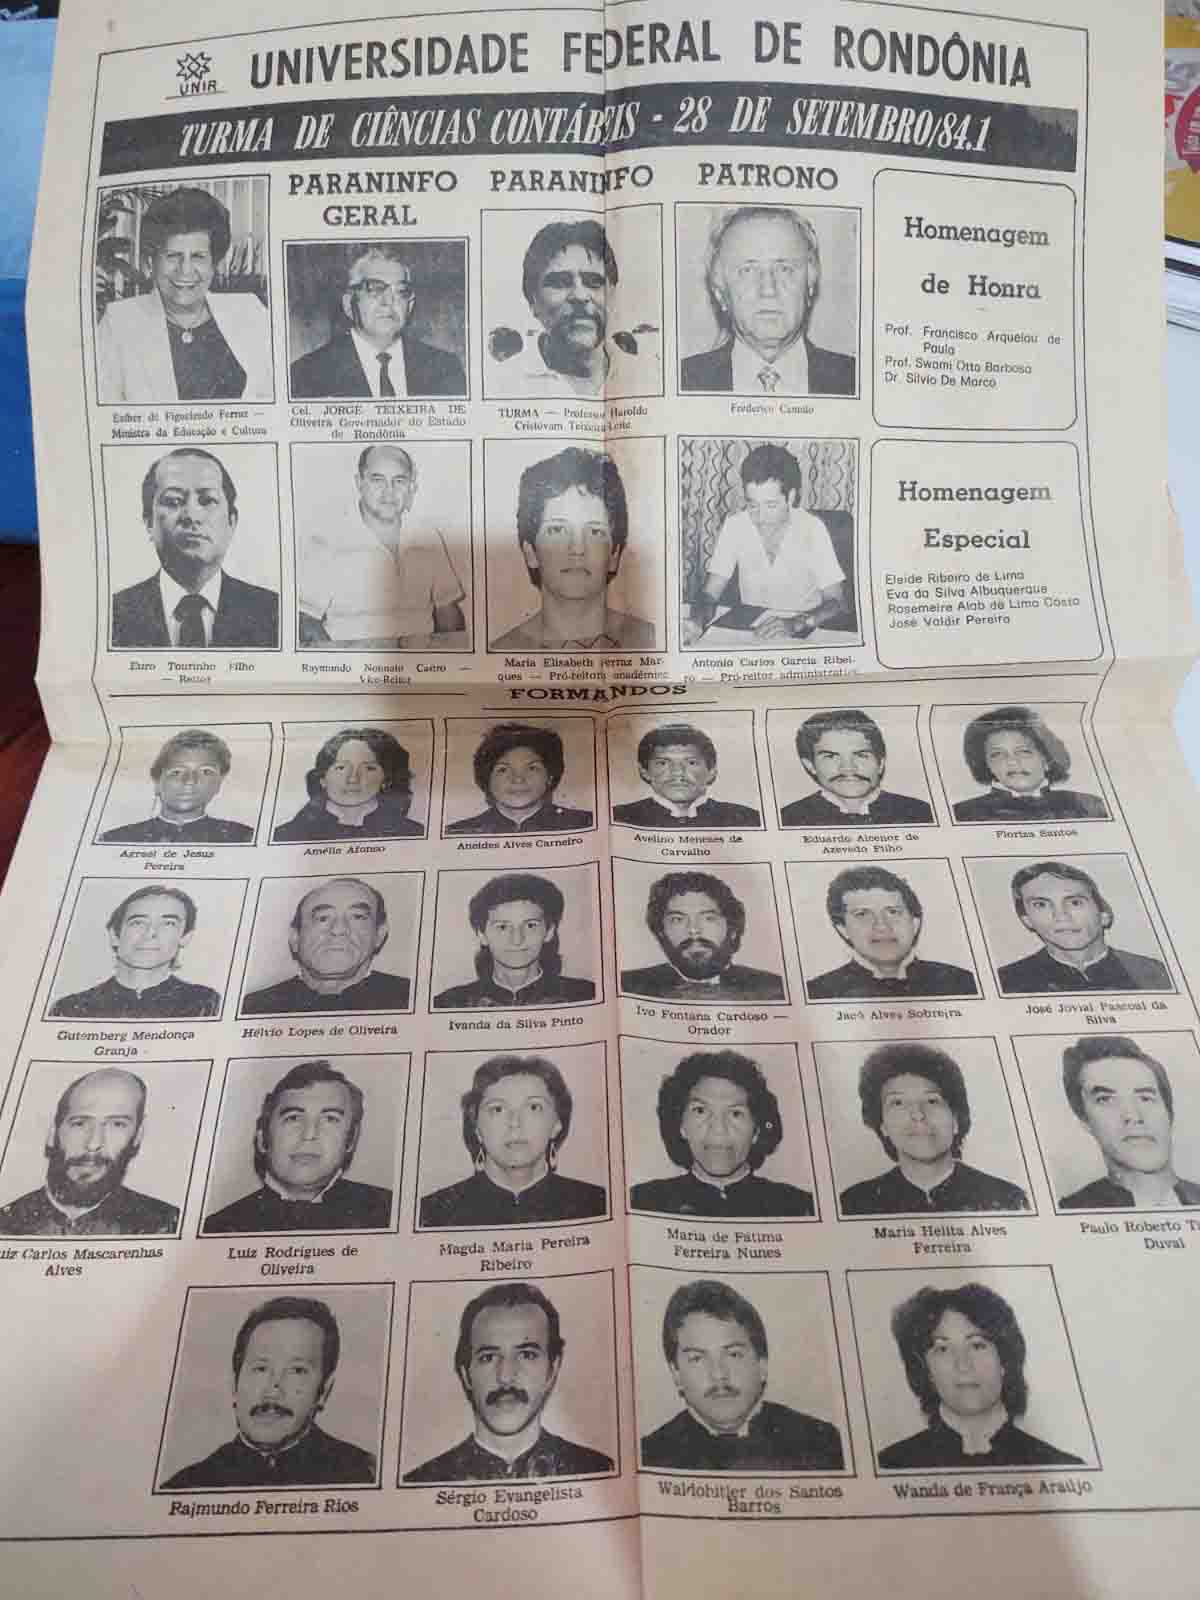 UNIR
UNIVERSIDADE FEDERAL DE RONDÔNIA
TURMA DE CIÊNCIAS CONTÁBEIS - 28 DE SETEMBRO/84.1
PARANINFO
GERAL
PARANINFO
PATRONO
Homenagem
de Honra
Prof. Francisco Arquelau de
Paula
Prof. Swami Otto Barbosa
Dr. Silvio De Marco
Esther de Figueiredo Ferraz —
Ministra da Educação e Cultura
Cel. JORGE TEIXEIRA DE
Oliveira Governador do Estado
de Rondônia
TURMA — Professor Haroldo
Cristóvam Teixeira Leite
Frederico Camilo
Homenagem
Especial
Eleide Ribeiro de Lima
Eva da Silva Albuquerque
Rosemeire Alab de Lima Costa
José Valdir Pereira
Euro Tourinho Filho
— Reitor
Raymundo Nonnato Castro —
Vice-Reitor
Maria Elisabeth Ferraz Mar-
ques — Pró-reitora acadêmica
Antonio Carlos Garcia Ribei-
ro — Pró-reitor administrativo
FORMANDOS
Agrael de Jesus
Pereira
Amélia Afonso
Aneides Alves Carneiro
Avelino Meneses de
Carvalho
Eduardo Alcenor de
Azevedo Filho
Floriza Santos
Gutemberg Mendonça
Granja
Hélvio Lopes de Oliveira
Ivanda da Silva Pinto
Ivo Fontana Cardoso —
Orador
Jacó Alves Sobreira
José Jovial Pascoal da
Silva
uiz Carlos Mascarenhas
Alves
Luiz Rodrigues de
Oliveira
Magda Maria Pereira
Ribeiro
Maria de Fátima
Ferreira Nunes
Maria Helita Alves
Ferreira
Paulo Roberto
Duval
Raimundo Ferreira Rios
Sérgio Evangelista
Cardoso
Waldohitler dos Santos
Barros
Wanda de França Araújo